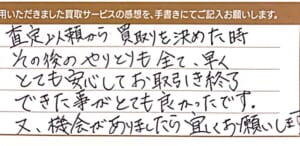 用いただきました買取サービスの感想を、手書きにてご記入お願いします。
査定依頼から買取りを決めた時
その後のやりとりも全て、早く
とても安心してお取引き終了
できた事がとても良かったです。
又、機会がありましたら宜しくお願いします